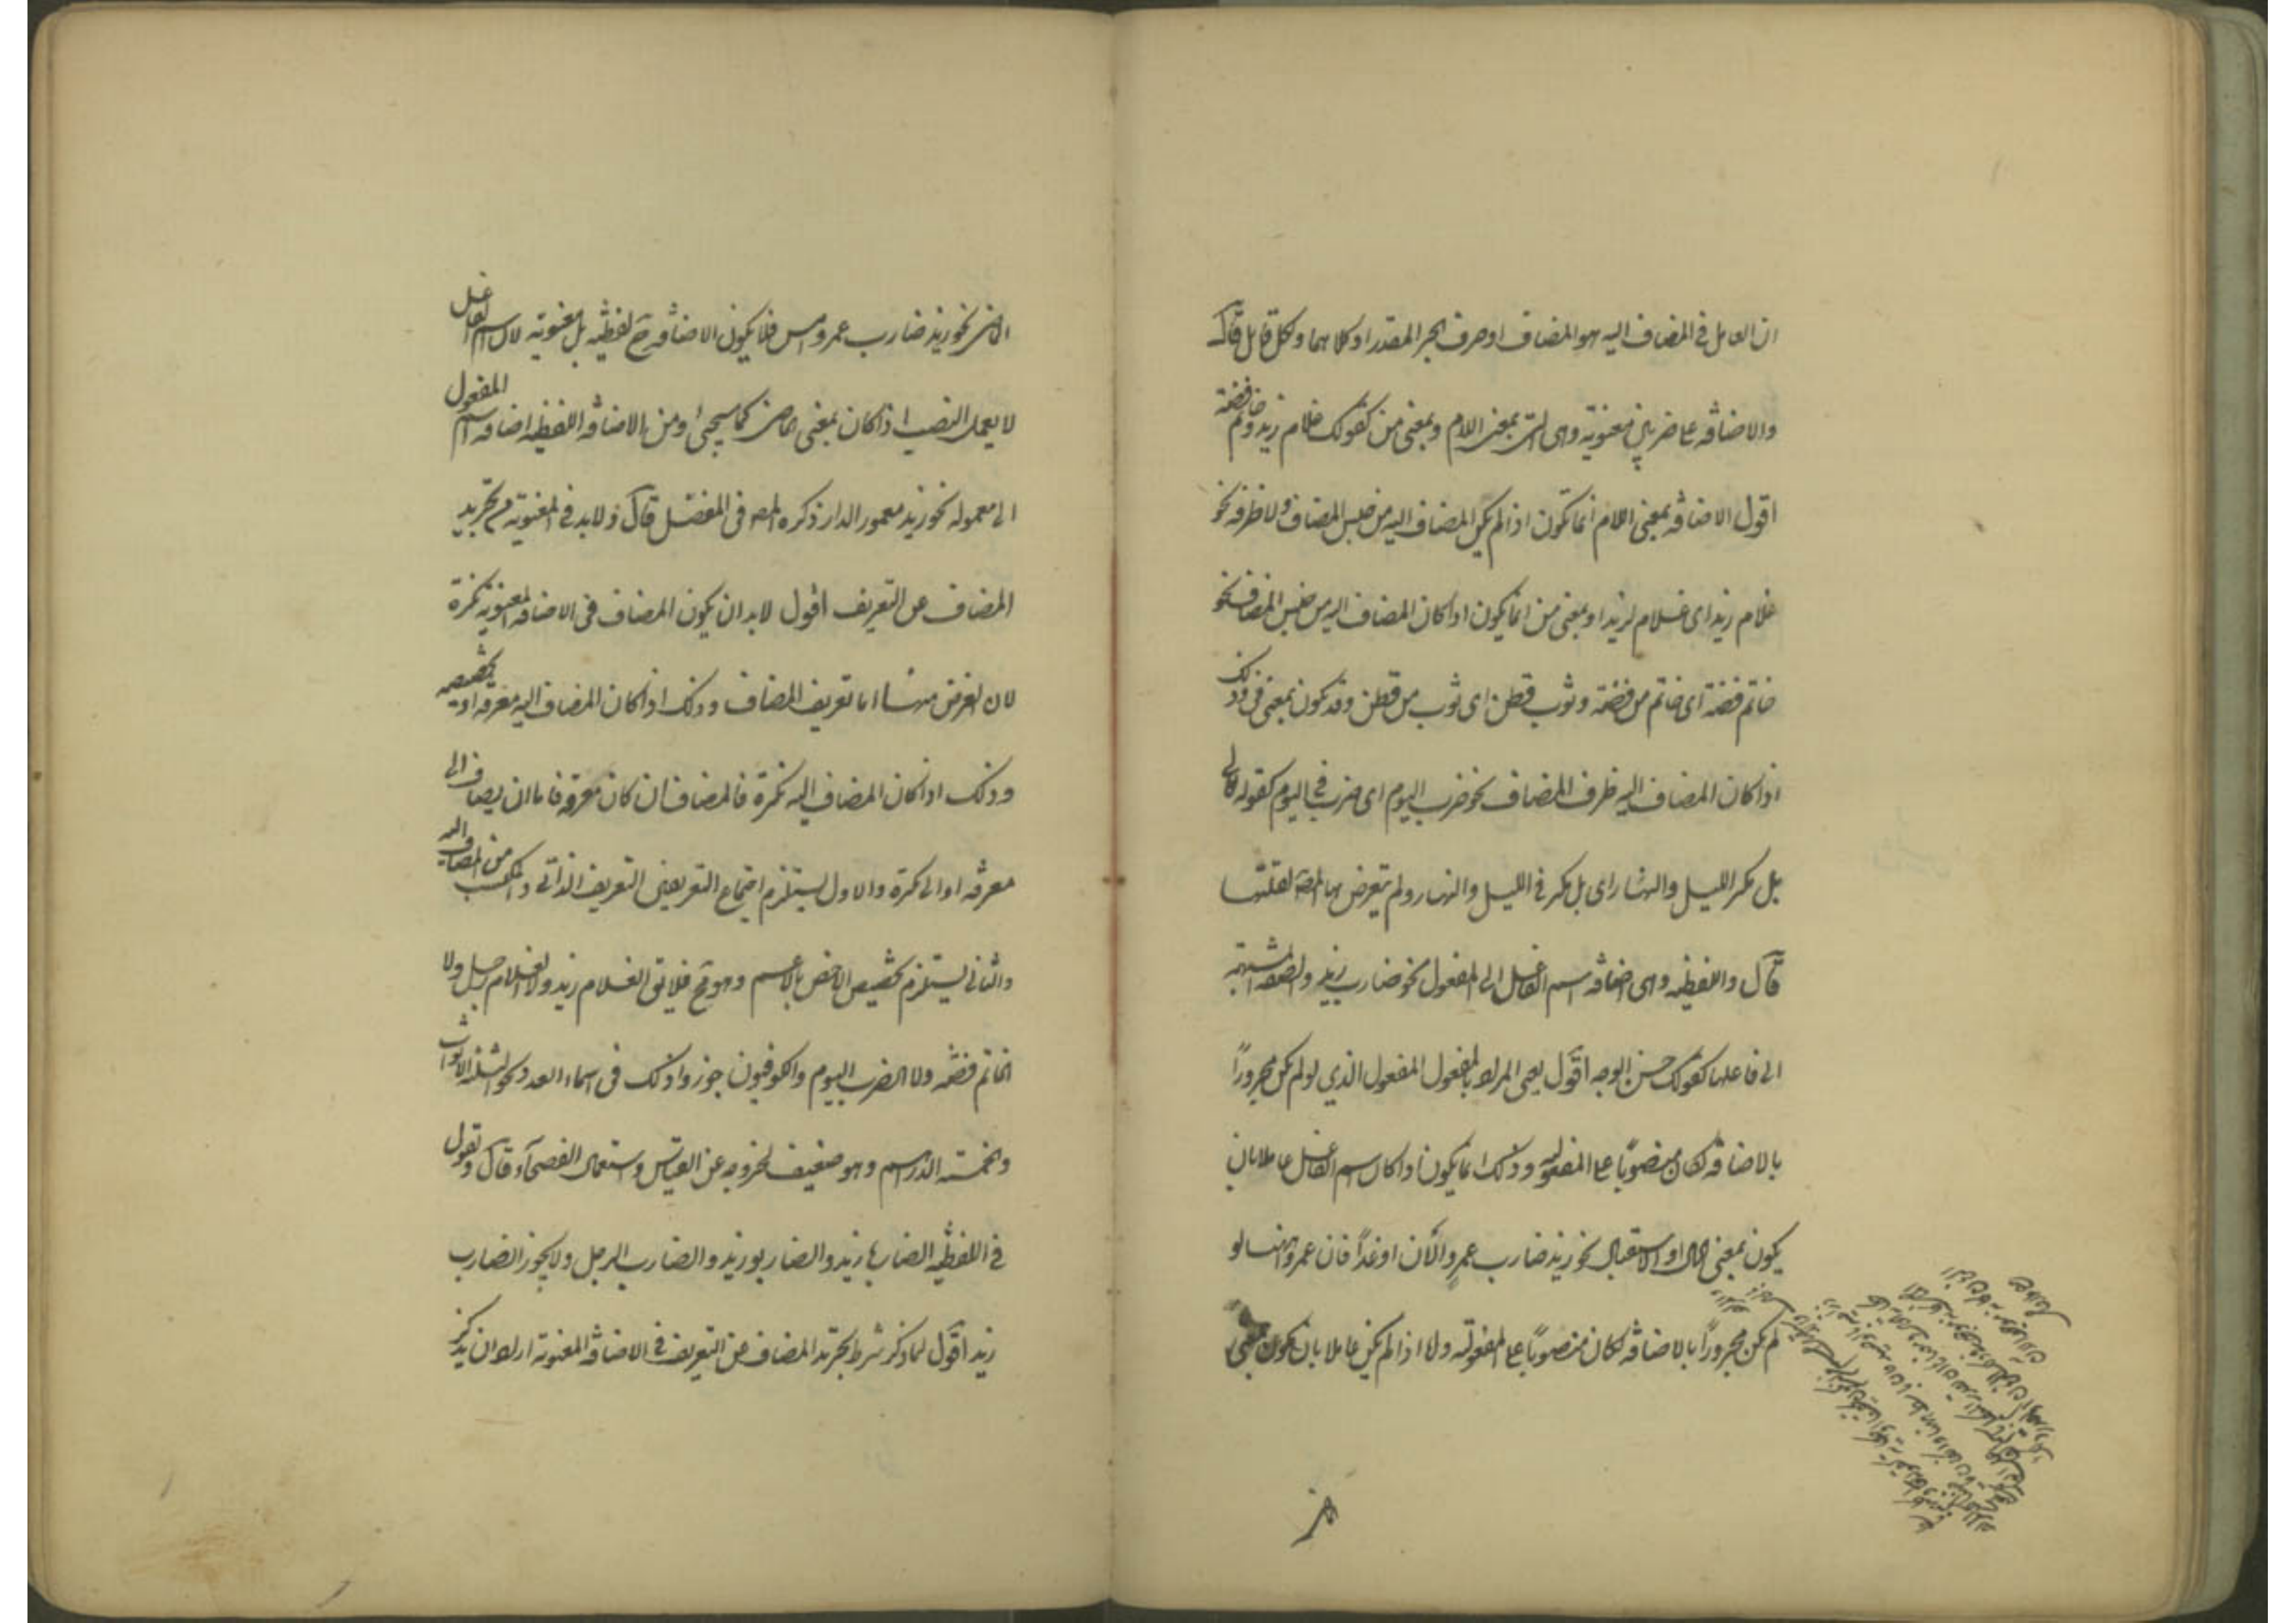 ان العامل فى المضاف اليه هو المضاف او حرف الجر المقدر او كلاهما ولكل قايل قال
والاضافة على ضربين معنوية وهى التى بمعنى اللام وبمعنى من كقولك غلام زيد وخاتم فضة
اقول الاضافة بمعنى اللام انما تكون اذا لم يكن المضاف اليه من جنس المضاف ولا ظرفه نحو
غلام زيد اى غلام لزيد او بمعنى من انما يكون اذا كان المضاف اليه من جنس المضاف نحو
خاتم فضة اى خاتم من فضة وثوب قطن اى ثوب من قطن وقد تكون بمعنى فى وذلك
اذا كان المضاف اليه ظرف المضاف نحو ضرب اليوم اى ضرب فى اليوم كقوله تعالى
بل مكر الليل والنهار اى بل مكر فى الليل والنهار ولم يتعرض بها المص لقلتها
قال واللفظية وهى اضافة اسم الفاعل الى المفعول نحو ضارب زيد والصفة المشبهة
الى فاعلها كقولك حسن الوجه اقول يعنى المراد بالمفعول المفعول الذى لو لم يكن مجرورًا
بالاضافة لكان منصوبًا على المفعولية وذلك انما يكون اذا كان اسم الفاعل عاملا بان
يكون بمعنى الحال او الاستقبال نحو زيد ضارب عمرو الآن او غدًا فان عمروا ههنا لو
لم يكن مجرورًا بالاضافة لكان منصوبًا على المفعولية ولا اذا لم يكن عاملا بان يكون بمعنى
الماضى نحو زيد ضارب عمرو امس فلا يكون الاضافة ح لفظية بل معنوية لان اسم الفاعل
لا يعمل النصب اذا كان بمعنى الماضى كما سيجىء ومن الاضافة اللفظية اضافة اسم المفعول
الى معموله نحو زيد معمور الدار ذكره المص فى المفصل قال ولا بد فى المعنوية من تجريد
المضاف عن التعريف اقول لا بد ان يكون المضاف فى الاضافة المعنوية نكرة
لان الغرض منها اما تعريف المضاف وذلك اذا كان المضاف اليه معرفة او تخصيصه
وذلك اذا كان المضاف اليه نكرة فالمضاف ان كان معرفة فاما ان يضاف الى
معرفة او الى نكرة والاول يستلزم اجتماع التعريفين التعريف الذاتى والمكتسب من المضاف اليه
والثانى يستلزم تخصيص الاخص بالاعم وهو قبح فلا يق الغلام زيد ولا الغلام رجل ولا
الخاتم فضة ولا الضرب اليوم والكوفيون جوزوا ذلك فى اسماء العدد نحو الثلثة الاثواب
والخمسة الدراهم وهو ضعيف لخروجه عن القياس واستعمال الفصحآء قال وتقول
فى اللفظية الضاربا زيد والضاربو زيد والضارب الرجل ولا يجوز الضارب
زيد اقول لما ذكر شرط تجريد المضاف عن التعريف فى الاضافة المعنوية اراد ان يذكر